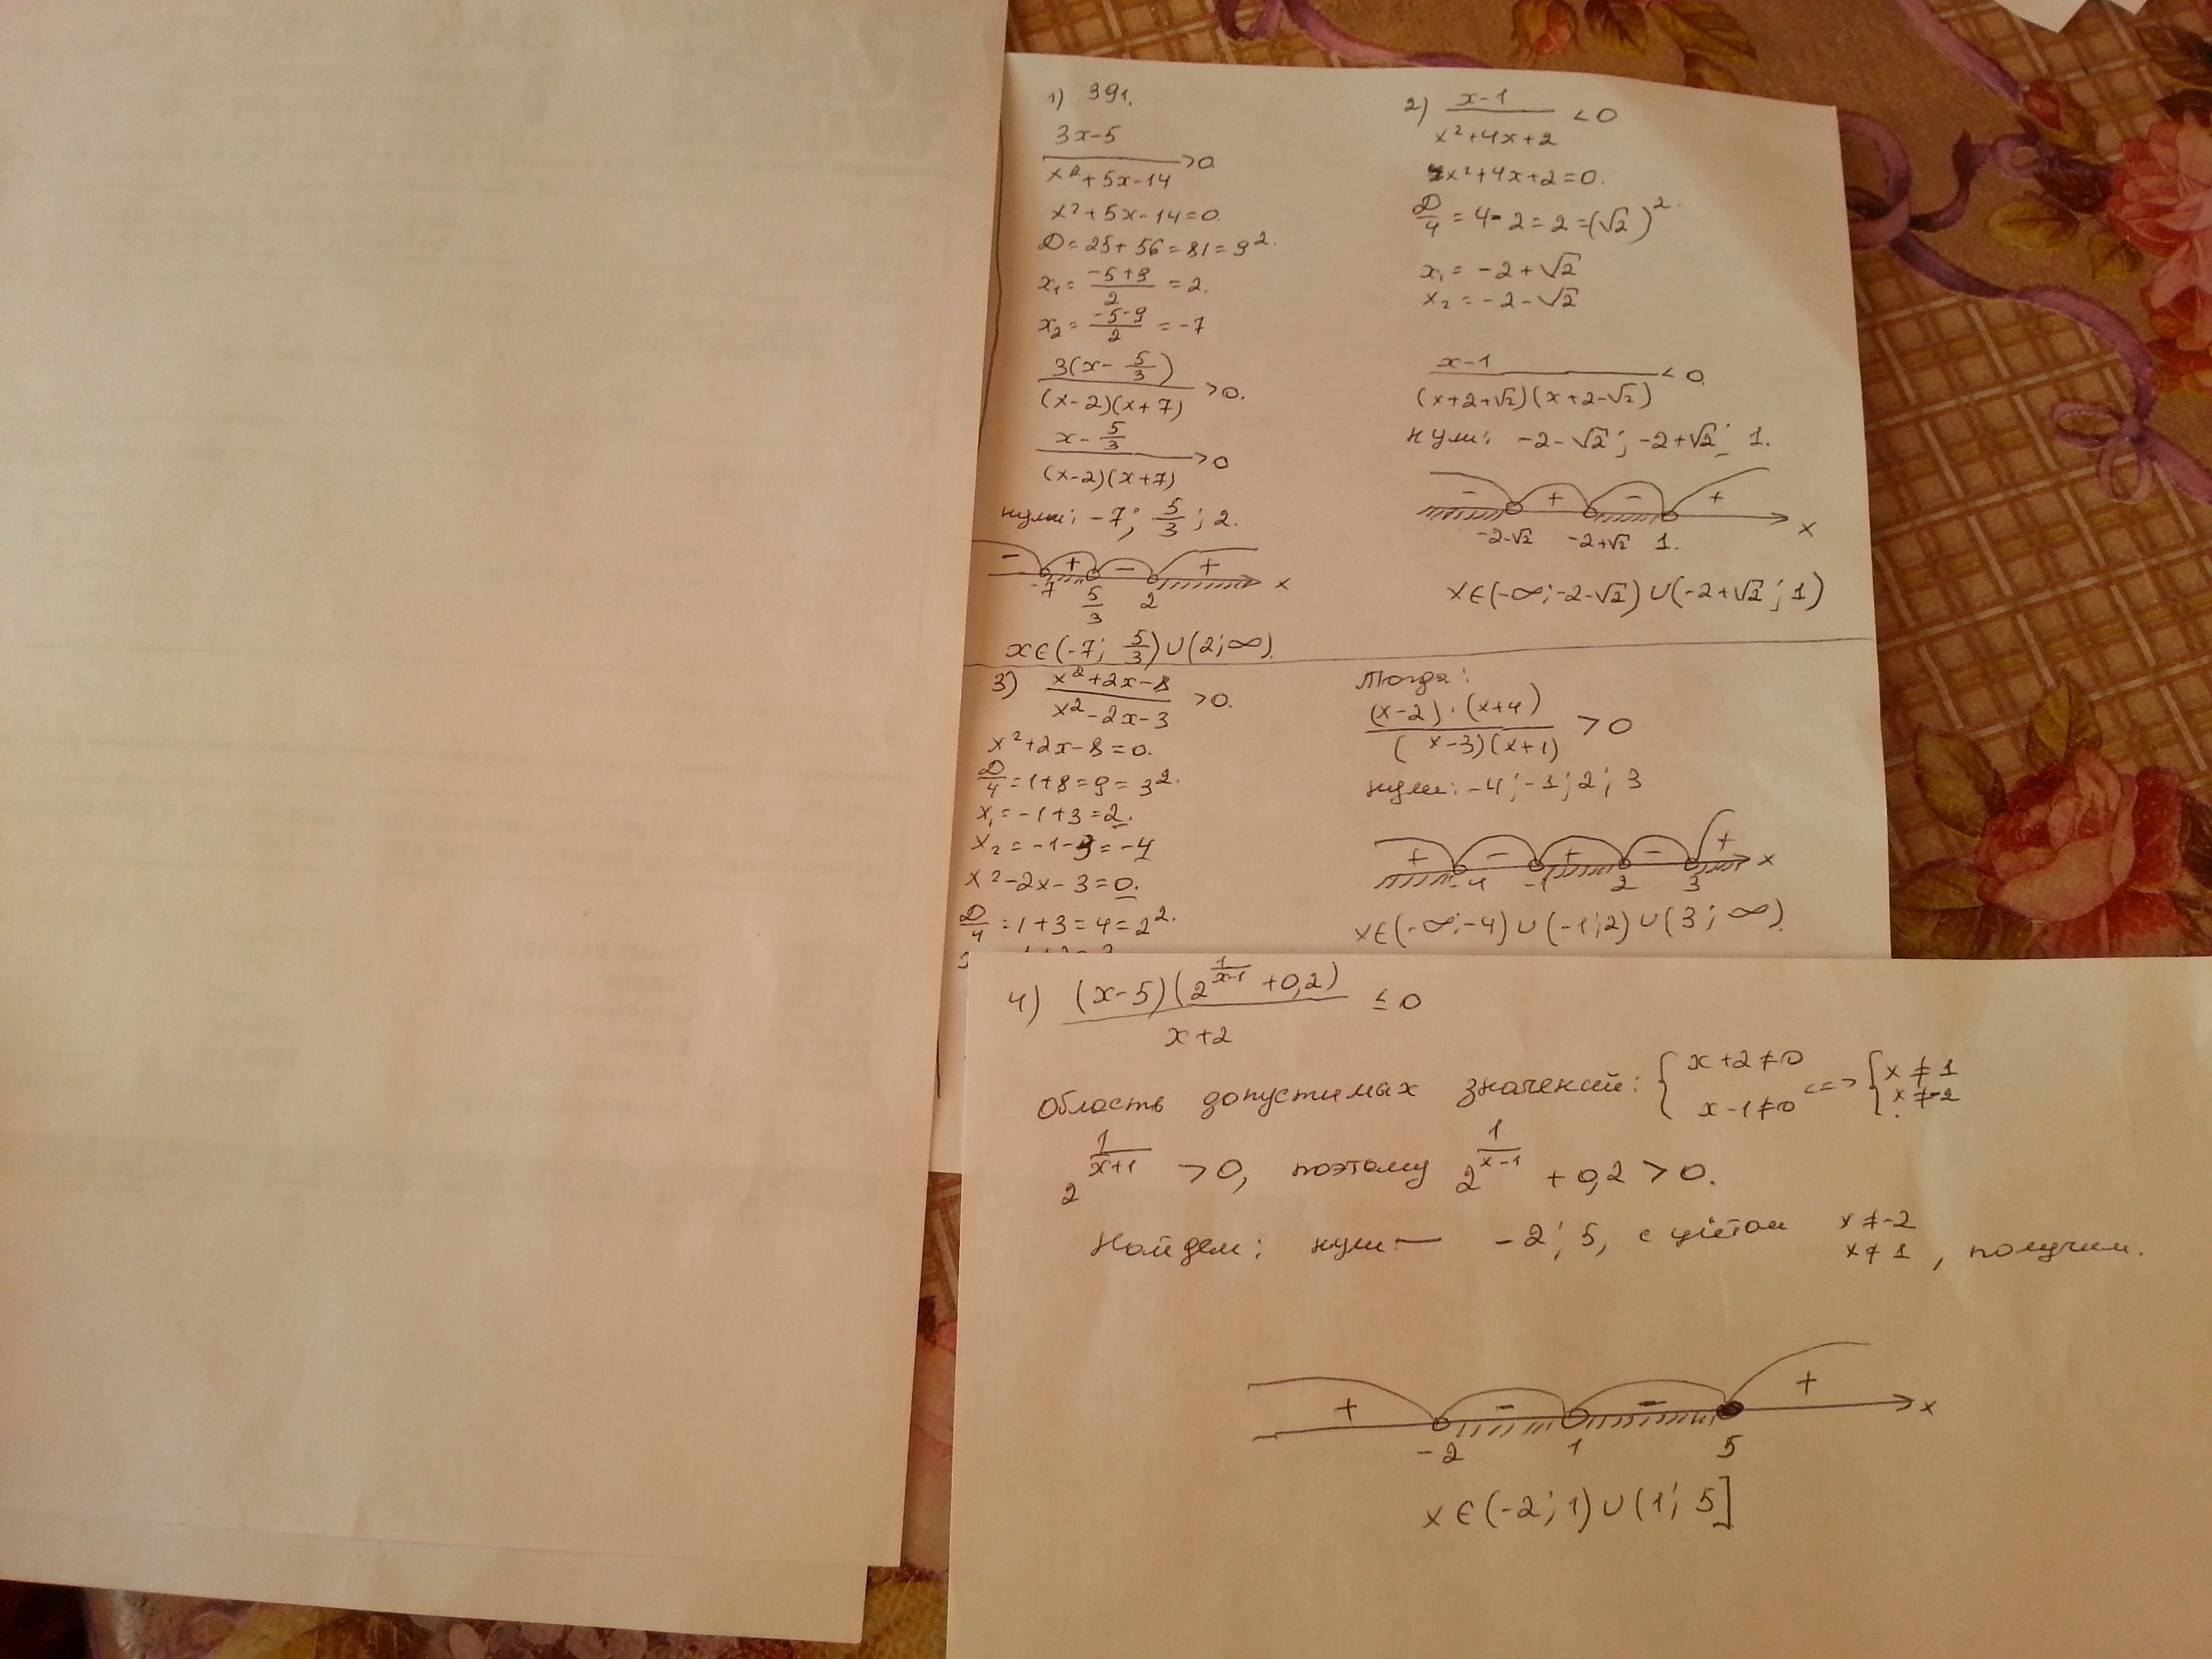 1) 391.
3x-5
―――― >0.
x²+5x-14
x²+5x-14=0.
D=25+56=81=9².
x₁= (-5+9)/2 =2.
x₂= (-5-9)/2 =-7
3(x- 5/3)
―――― >0.
(x-2)(x+7)
x- 5/3
―――― >0
(x-2)(x+7)
нули: -7; 5/3; 2.
- + - +
-7 5/3 2 x
x∈(-7; 5/3)∪(2;∞).
2) x-1
―――― <0
x²+4x+2
x²+4x+2=0.
D/4 =4-2=2=(√2)².
x₁=-2+√2
x₂=-2-√2
x-1
―――― <0.
(x+2+√2)(x+2-√2)
нули: -2-√2; -2+√2; 1.
- + - +
-2-√2 -2+√2 1. x
x∈(-∞;-2-√2)∪(-2+√2;1)
3) x²+2x-8
―――― >0.
x²-2x-3
x²+2x-8=0.
D/4 =1+8=9=3².
x₁=-1+3=2.
x₂=-1-3=-4
x²-2x-3=0.
D/4 =1+3=4=2².
Тогда:
(x-2)·(x+4)
―――― >0
(x-3)(x+1)
нули: -4;-1;2;3
+ - + - +
-4 -1 2 3 x
x∈(-∞;-4)∪(-1;2)∪(3;∞).
4) (x-5)(2^(1/(x-1)) +0,2)
―――― ≤0
x+2
Область допустимах значений: { x+2≠0 x-1≠0 <=> { x≠1 x≠-2
2^(1/(x+1)) >0, поэтому 2^(1/(x-1)) +0,2>0.
Найдем: нули — -2; 5, с учётом x≠-2 x≠1, получим.
+ - - +
-2 1 5 x
x∈(-2;1)∪(1;5]